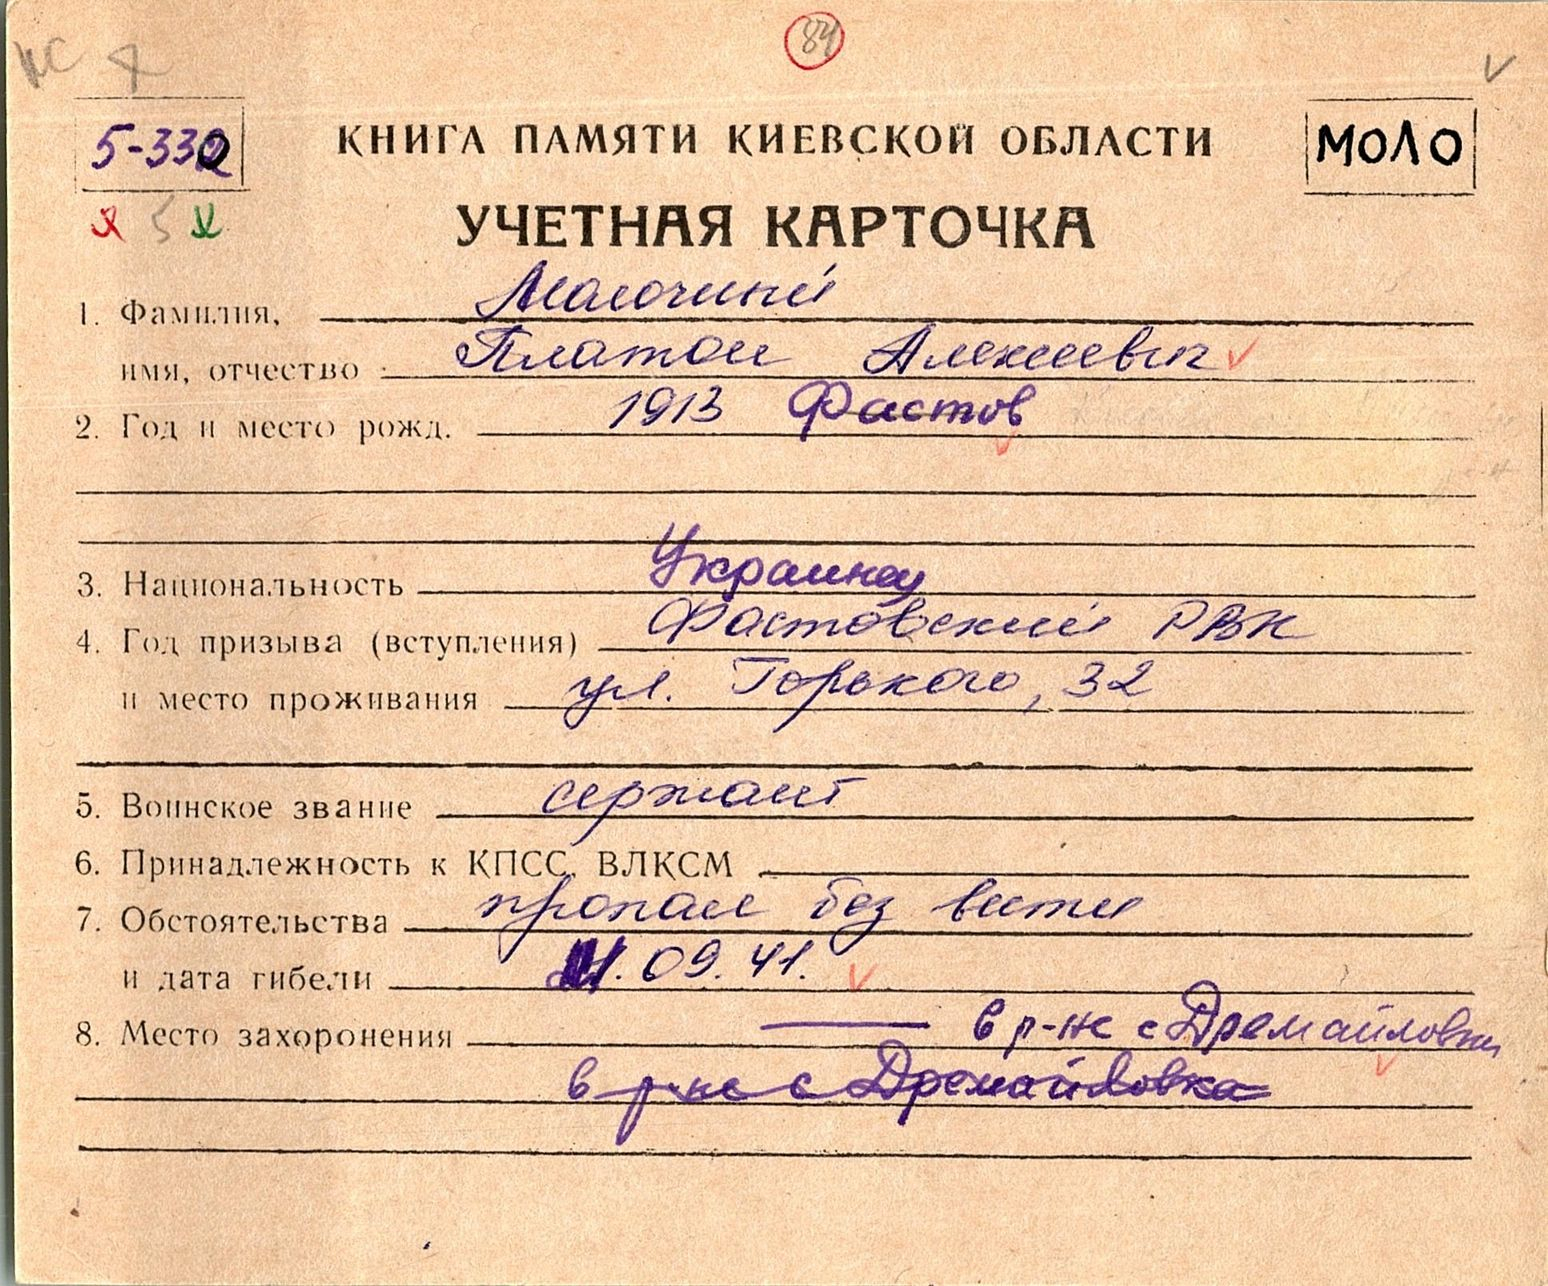 84
5-332
КНИГА ПАМЯТИ КИЕВСКОЙ ОБЛАСТИ
МОЛО
УЧЕТНАЯ КАРТОЧКА
1. Фамилия, Молочный
имя, отчество Платон Алексеевич
2. Год и место рожд. 1913 Фастов
3. Национальность Украинец
4. Год призыва (вступления) Фастовский РВК
и место проживания ул. Горького, 32
5. Воинское звание сержант
6. Принадлежность к КПСС, ВЛКСМ
7. Обстоятельства пропал без вести
и дата гибели 09.41.
8. Место захоронения — в р-не с Дремайловки
в р-не с Дремайловка